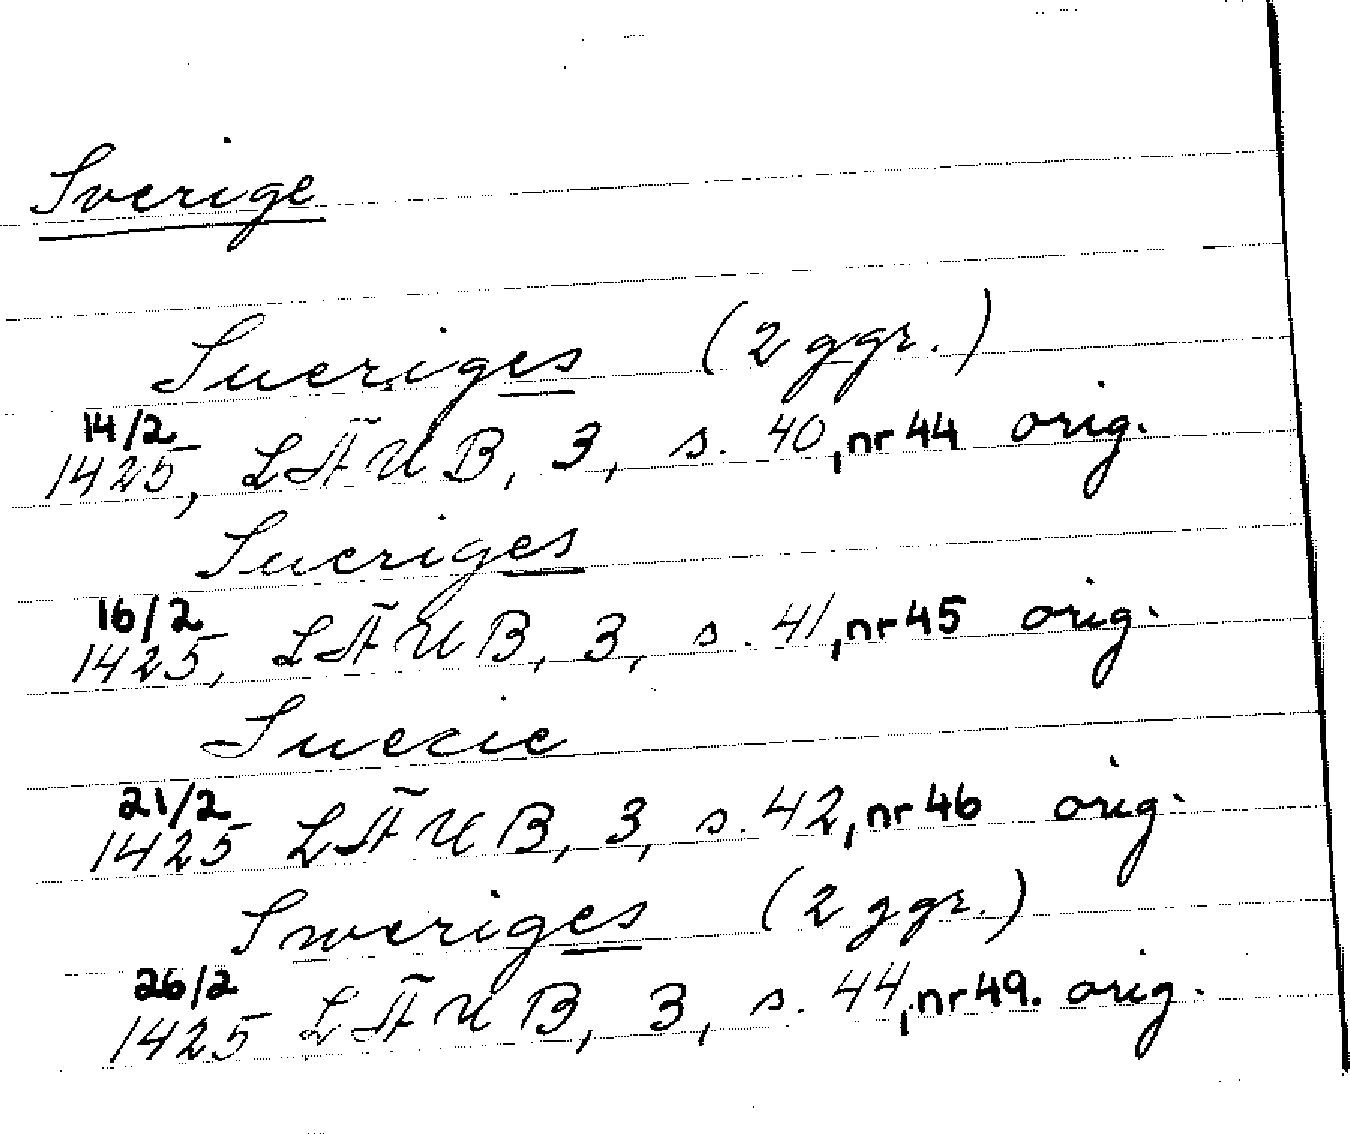 Sverige
Sueriges (2 ggr.)
14/2
1425, LÄUB, 3, s. 40, nr 44 orig.
Sueriges
16/2
1425, LÄUB, 3, s. 41, nr 45 orig.
Suecie
21/2
1425 LÄUB, 3, s. 42, nr 46 orig.
Sweriges (2 ggr.)
26/2
1425 LÄUB, 3, s. 44, nr 49. orig.